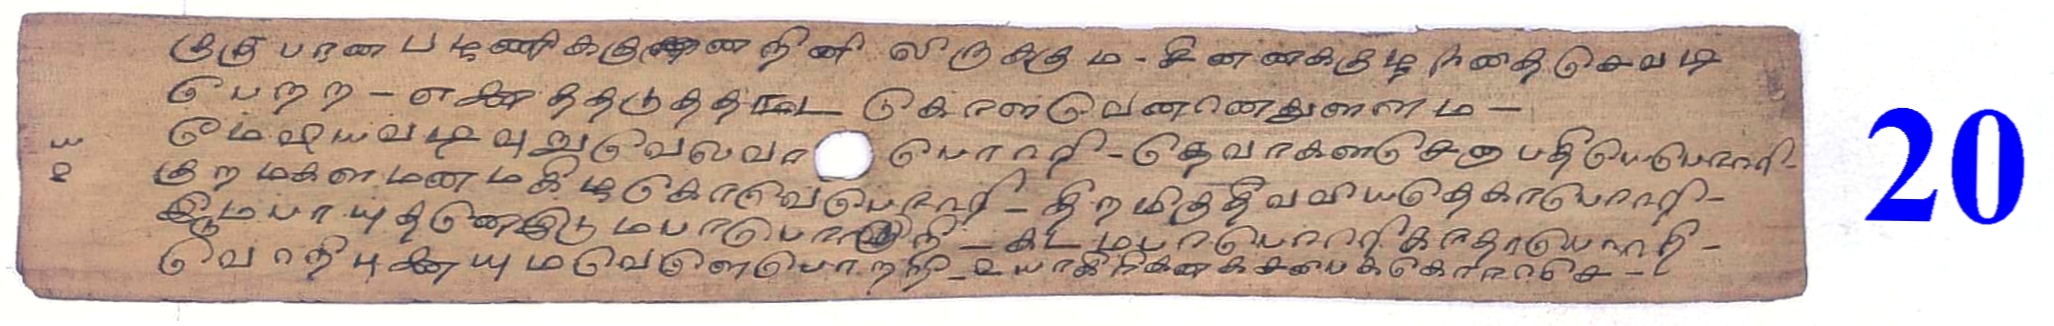 குரு பரன பழணிககுனறினி லிருககும - சினனககுழநதை செவடி
பெறற - எணததடுததாட கொளவெனனெதுளளம -
மெஷியவடிவுறுவெலவா பொறறி - தெவாகளசெனாபதியெபொறறி -
குறமகளமனமகிழகொவெபொறறி - திறமிகுதிவவியதெகாபொறறி -
இடுமபாயுதனெஇடுமபாபொறறி - கடமபாபொறறிகாநதாபொறறி -
வெறிபுணையுமவெளெபொறறி - உயாகிரிகனகசபைககொராசெ -
ய
உ
20